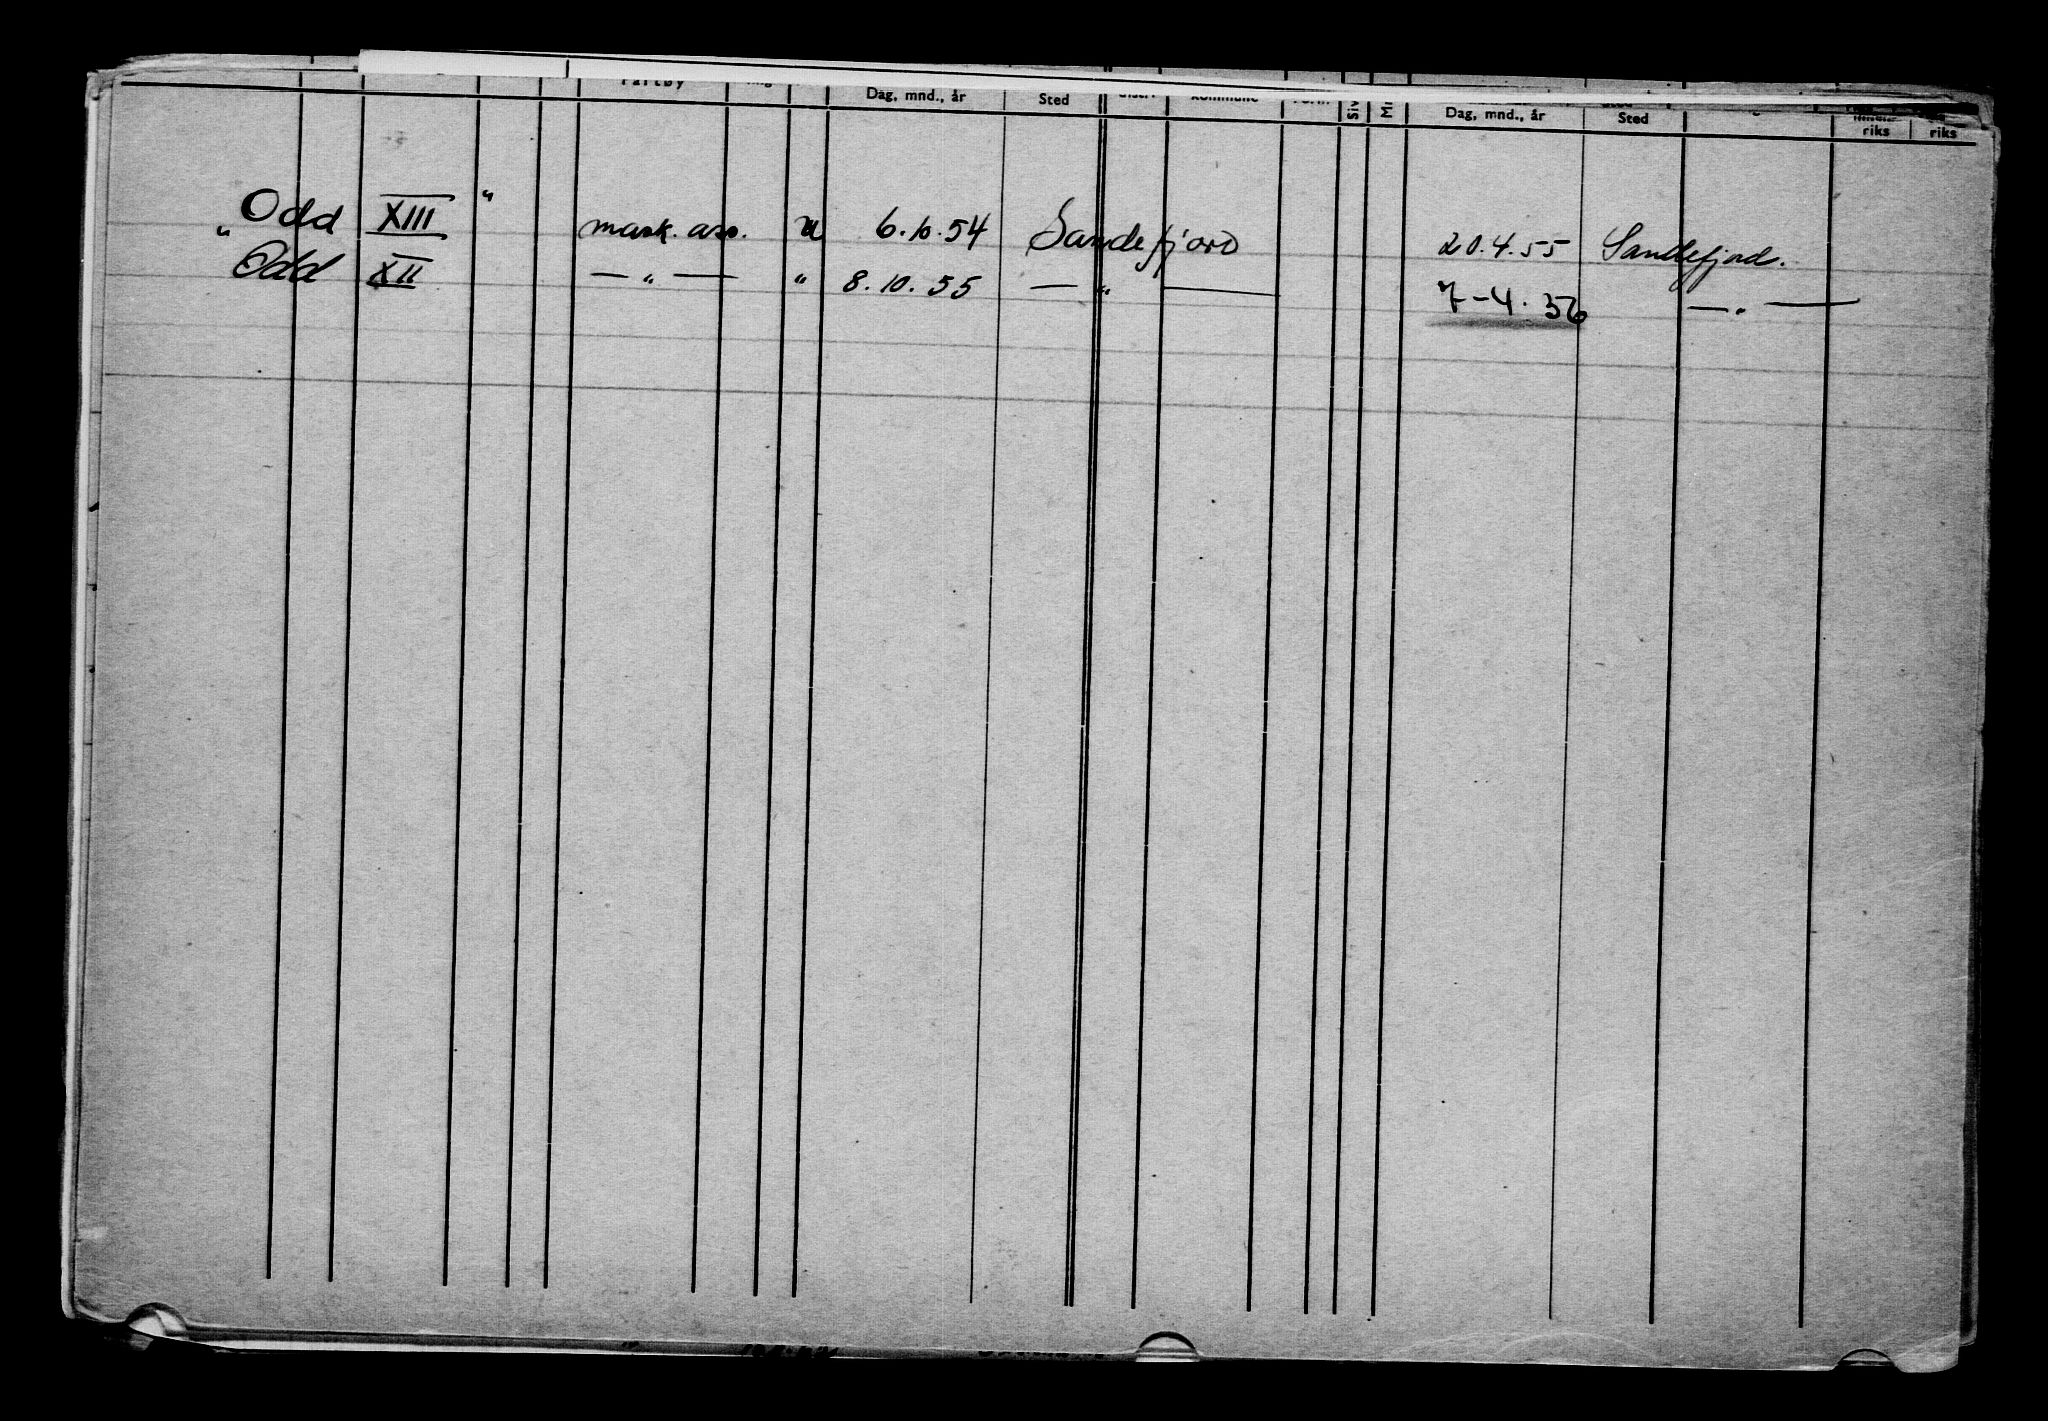 Fartøy Dag, mnd., år Sted kommune Siv Mi Dag, mnd., år Sted riks riks
"Odd XIII" mask. ass. u 6.10.54 Sandefjord 20.4.55 Sandefjord.
" Odd XII — " — " 8.10.55 — " — 7-4.56 — " —